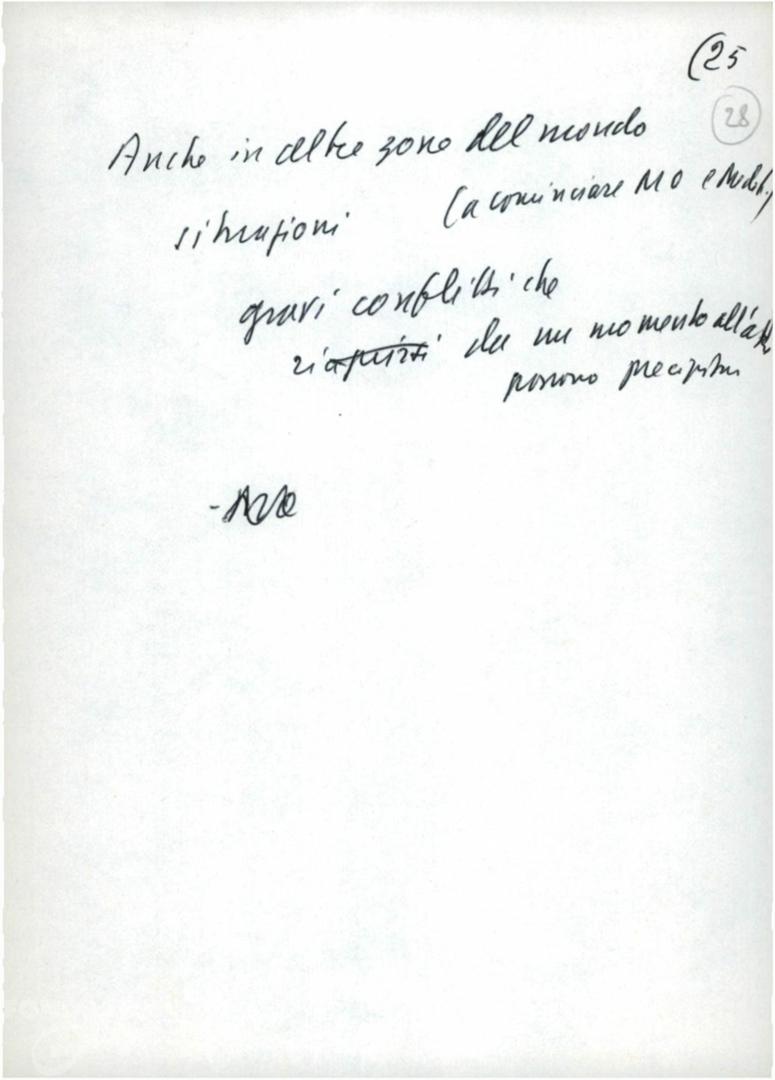 (25
28
Anche in altre zone del mondo
situazioni (a cominciare MO e Medit.)
gravi conflitti che
da un momento all'altro
possono precipitare